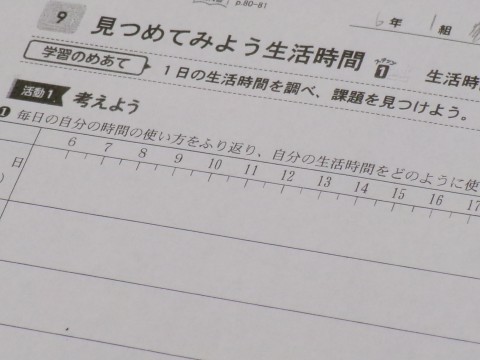 p.80-81
6年 1組
9 見つめてみよう生活時間 1 生活時
学習のめあて 1日の生活時間を調べ、課題を見つけよう。
活動1 考えよう
❶ 毎日の自分の時間の使い方をふり返り、自分の生活時間をどのように使
6 7 8 9 10 11 12 13 14 15 16 17
日
)